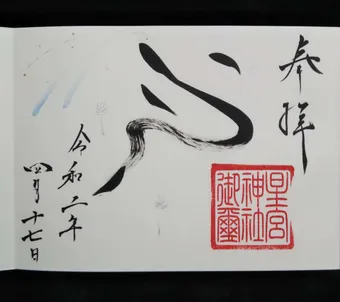 奉拝
星宮
神社
御璽
令和二年
四月十七日